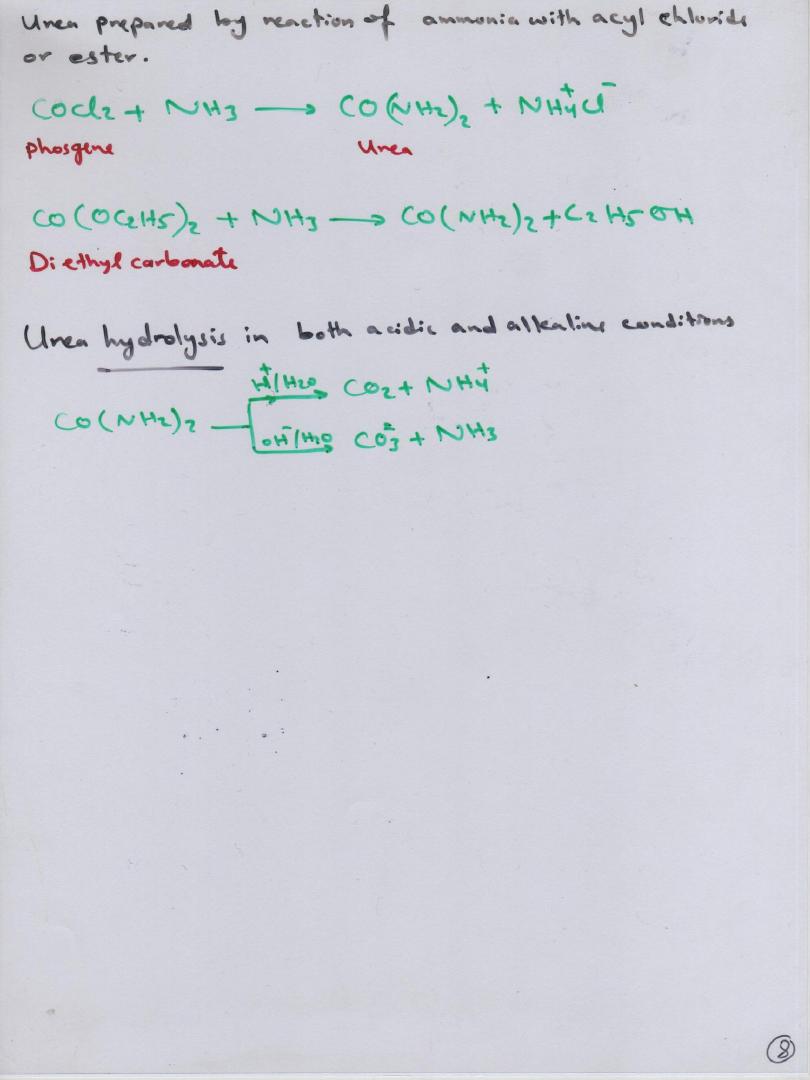 Urea prepared by reaction of ammonia with acyl chloride
or ester.
COCl2 + NH3 ⟶ CO(NH2)2 + NH4⁺Cl⁻
phosgene Urea
CO(OC2H5)2 + NH3 ⟶ CO(NH2)2 + C2H5OH
Diethyl carbonate
Urea hydrolysis in both acidic and alkaline conditions
H⁺/H2O CO2 + NH4⁺
CO(NH2)2
OH⁻/H2O CO3⁼ + NH3
8